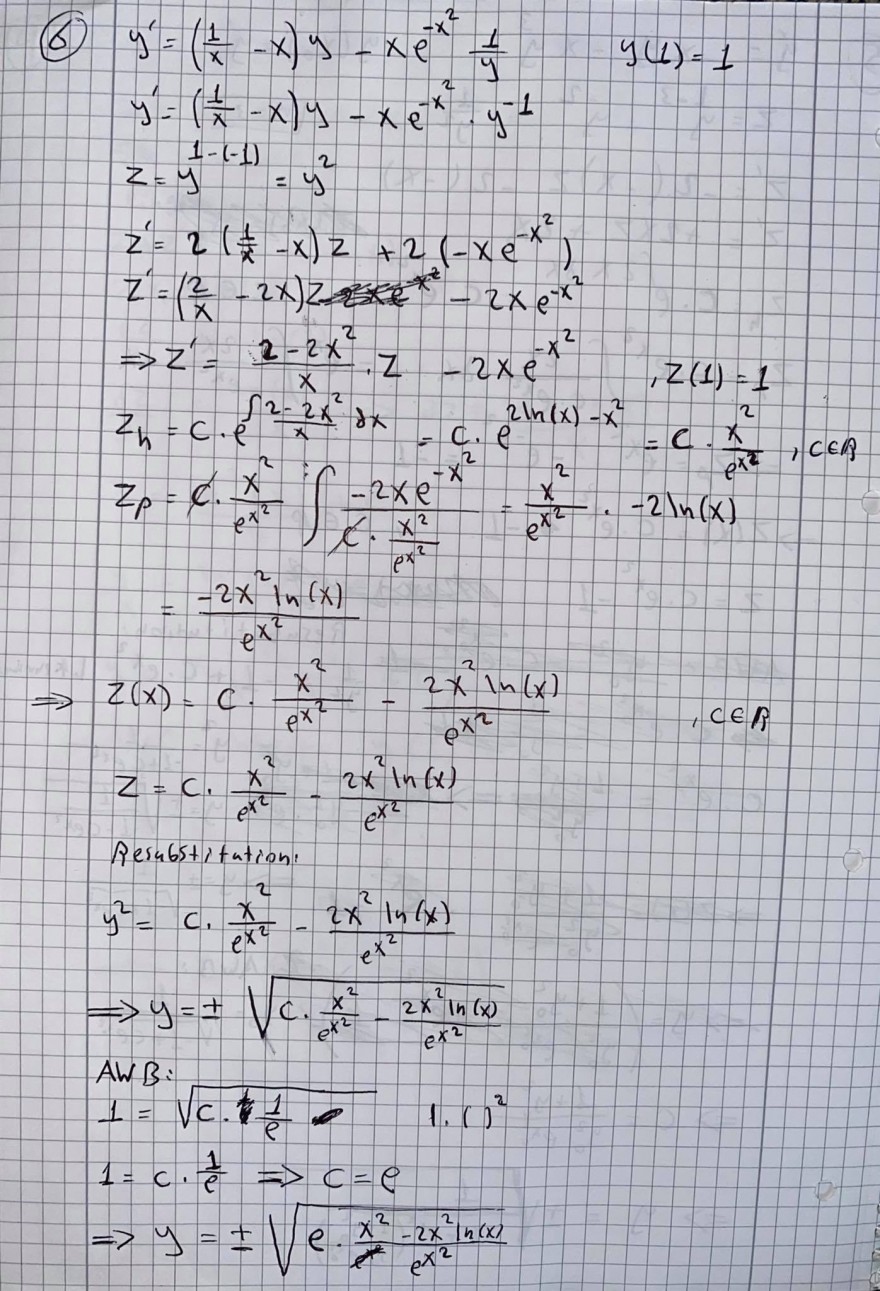 ⑥ y' = (1/x - x)y - xe^(-x²) 1/y    y(1) = 1
y' = (1/x - x)y - xe^(-x²) · y^(-1)
z = y^(1-(-1)) = y²
z' = 2(1/x - x)z + 2(-xe^(-x²))
z' = (2/x - 2x)z - 2xe^(-x²)
⇒ z' = (2-2x²)/x · z - 2xe^(-x²) , z(1) = 1
z_h = c · e^(∫ (2-2x²)/x dx) = c · e^(2ln(x)-x²) = c · x²/e^(x²) , c∈ℝ
z_p = c · x²/e^(x²) ∫ (-2xe^(-x²))/(c · x²/e^(x²)) = x²/e^(x²) · -2ln(x)
= (-2x² ln(x))/e^(x²)
⇒ z(x) = c · x²/e^(x²) - (2x² ln(x))/e^(x²) , c∈ℝ
z = c · x²/e^(x²) - (2x² ln(x))/e^(x²)
Resubstitution:
y² = c · x²/e^(x²) - (2x² ln(x))/e^(x²)
⇒ y = ± √(c · x²/e^(x²) - (2x² ln(x))/e^(x²))
AWB:
1 = √(c · 1/e)    | · ( )²
1 = c · 1/e ⇒ c = e
⇒ y = ± √(e · (x² - 2x² ln(x))/e^(x²))